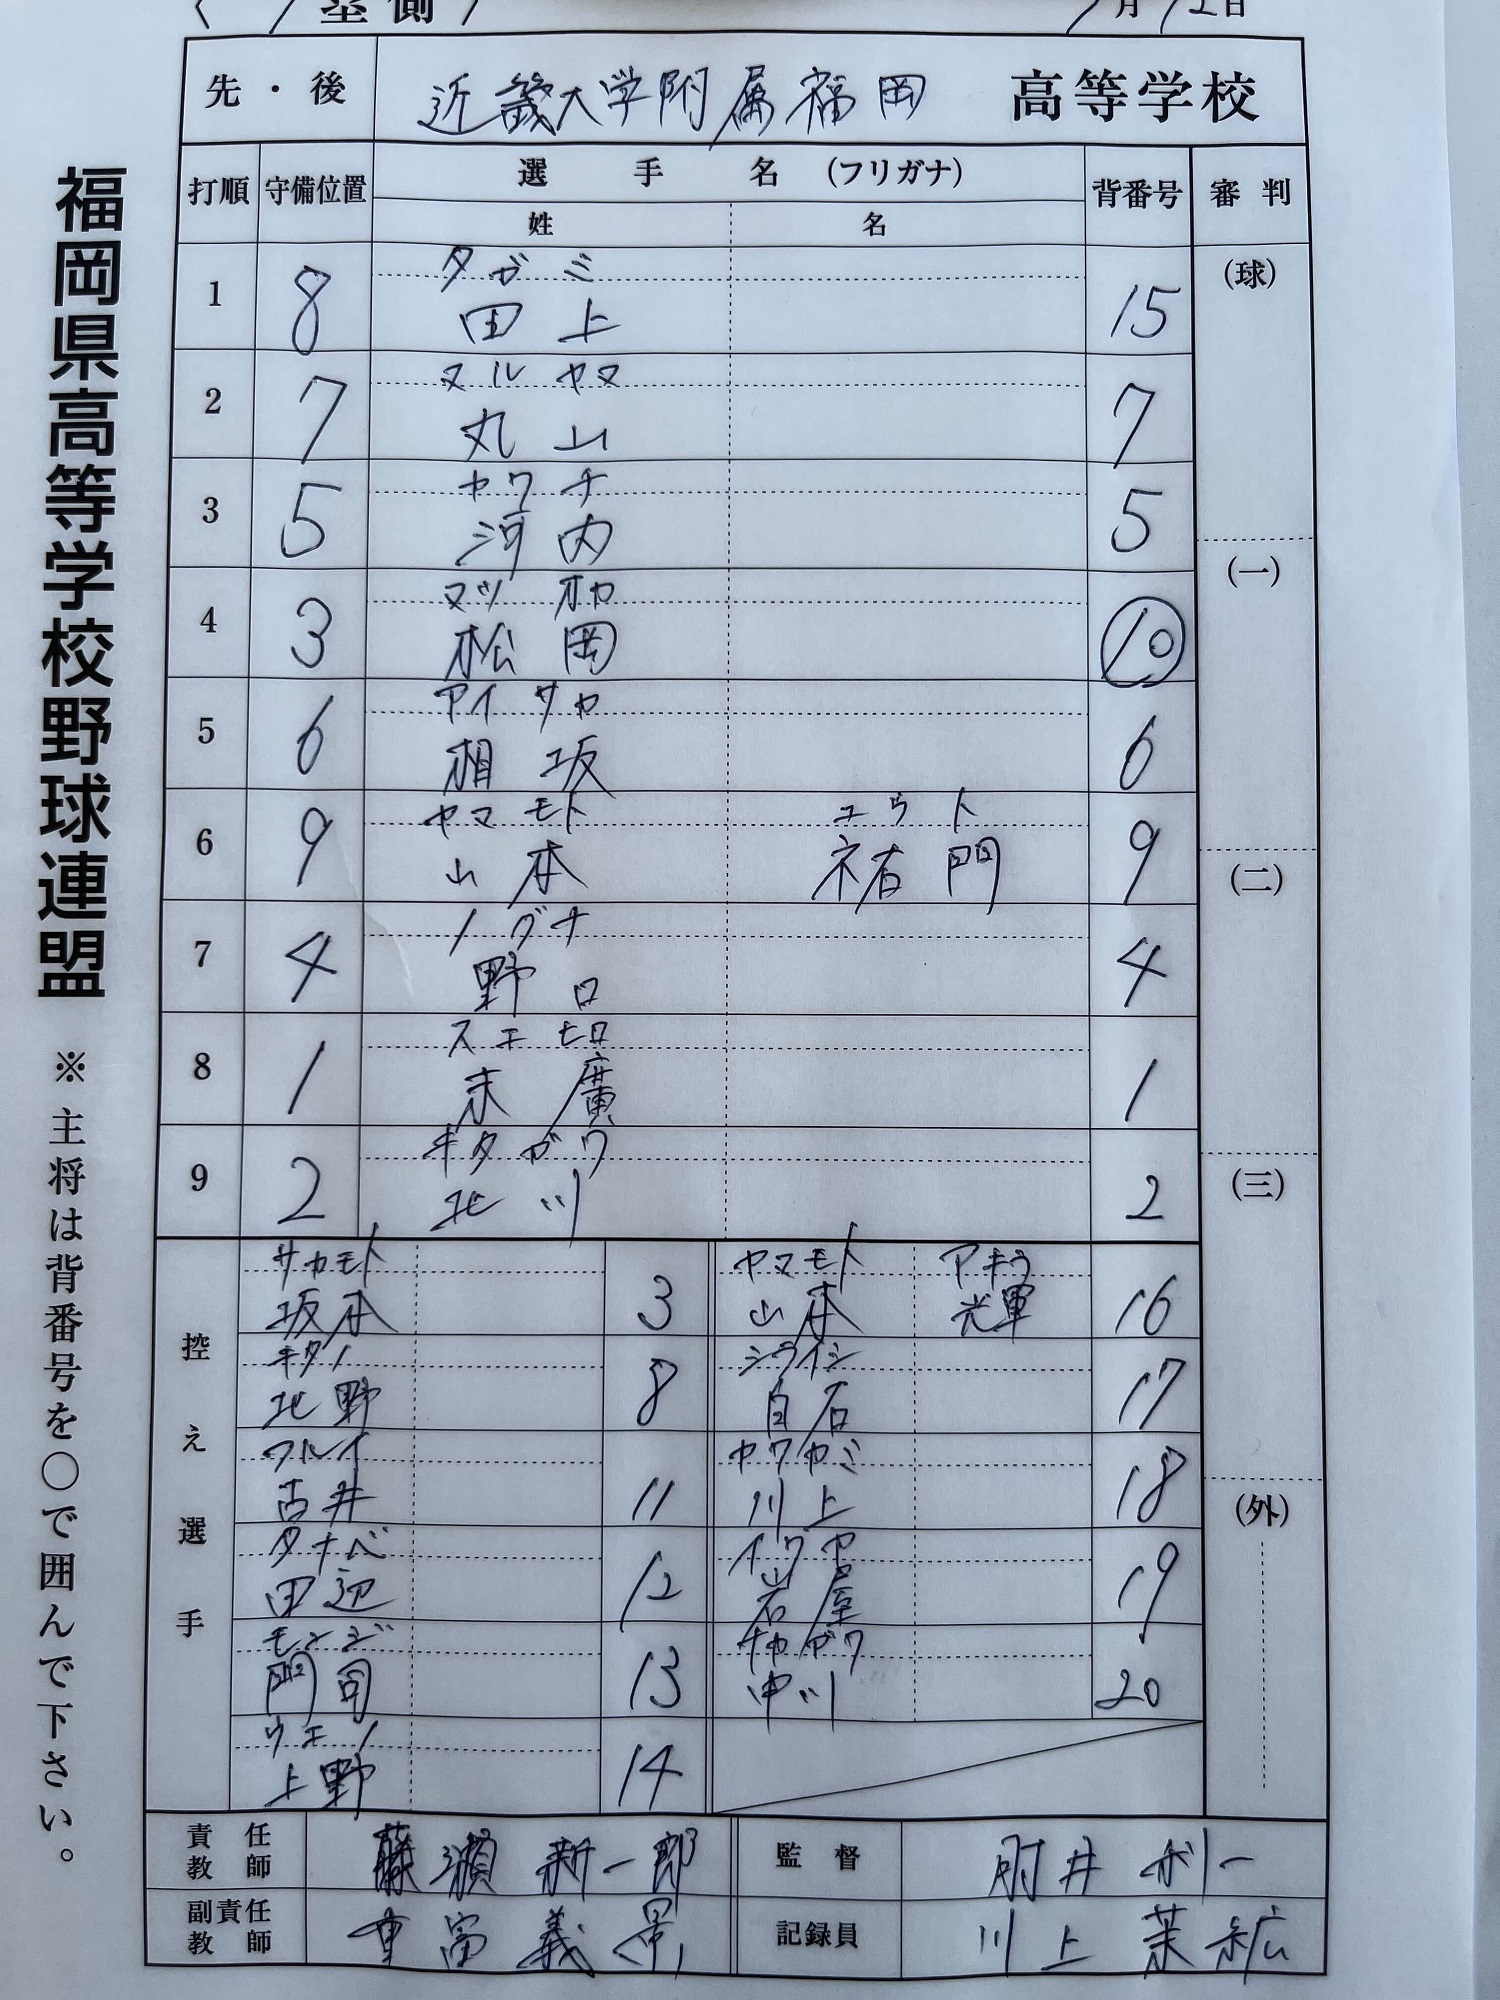 塁側
月12日
先・後 近畿大学附属福岡 高等学校
打順 守備位置 選手名(フリガナ) 背番号 審判
姓 名
(球)
タガミ
1 8 田上 15
マルヤマ
2 7 丸山 7
カワチ
3 5 河内 5
(一)
マツオカ
4 3 松岡 10
アイサカ
5 6 相坂 6
ヤマモト ユウト
6 9 山本 祐門 9
(二)
ノグチ
7 4 野口 4
スエヒロ
8 1 末廣 1
キタガワ
9 2 北川 2
(三)
控え選手
サカモト
坂本 3
キタノ
北野 8
フルイ
古井 11
タナベ
田辺 12
モンジ
門司 13
ウエノ
上野 14
ヤマモト アキラ
山本 光軍 16
シライシ
白石 17
カワカミ
川上 18
イワヤ
岩屋 19
ナカガワ
中川 20
(外)
責任教師 藤瀬新一郎
監督 肘井利一
副責任教師 重富義景
記録員 川上茉紘
福岡県高等学校野球連盟
※主将は背番号を○で囲んで下さい。